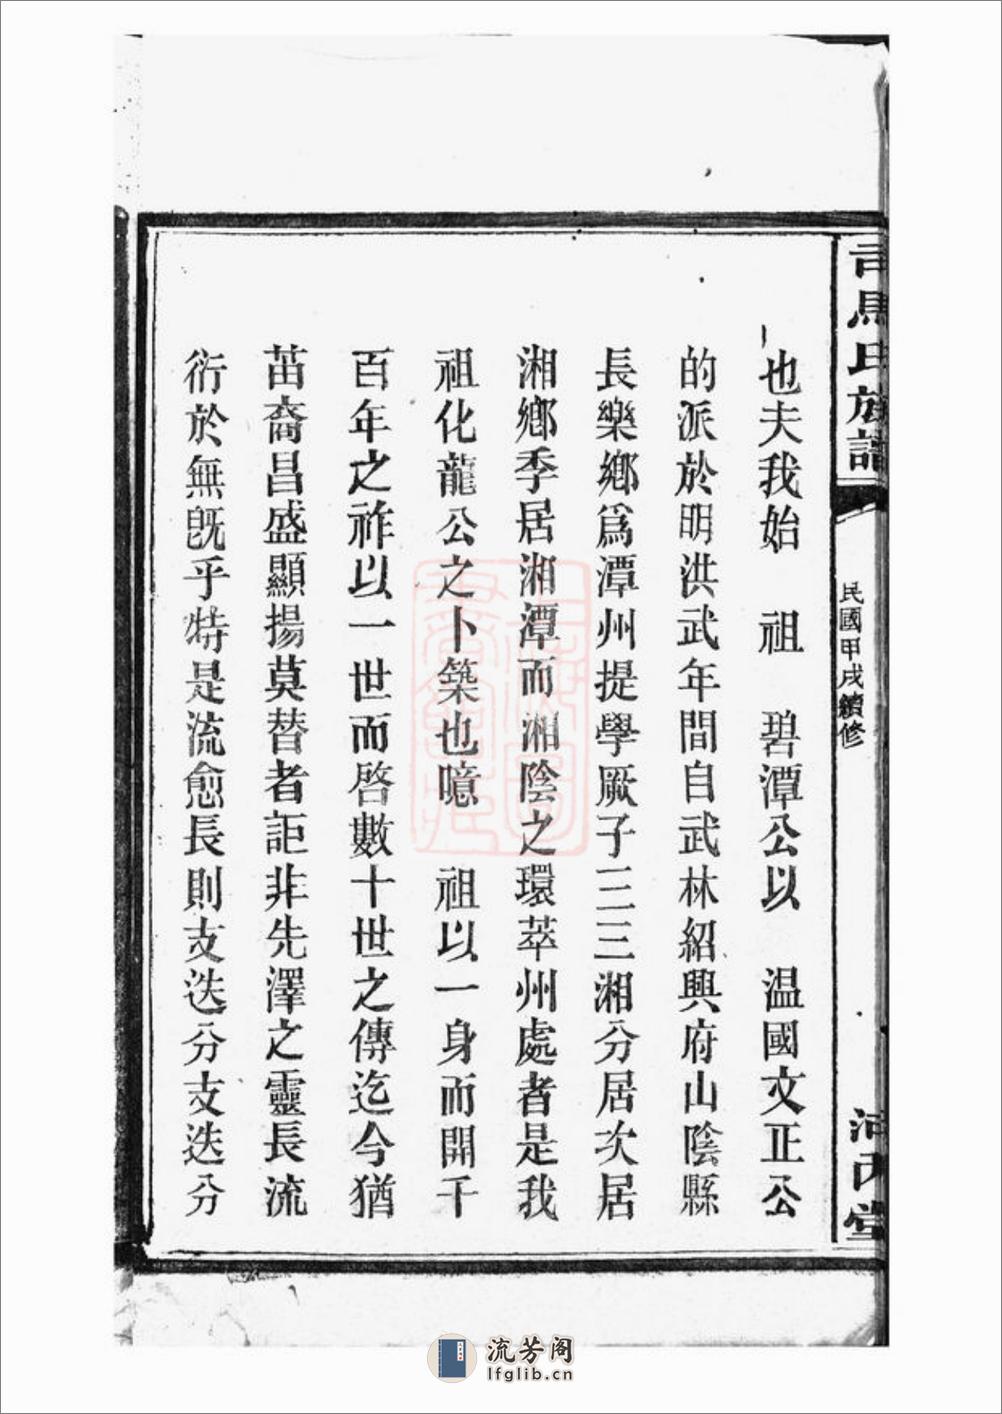 司馬氏族譜
民國甲戌續修
堂
也夫我始　祖　碧潭公以　温國文正公
的派於明洪武年間自武林紹興府山陰縣
長樂鄉爲潭州提學厥子三三湘分居次居
湘鄉季居湘潭而湘陰之環萃州處者是我
祖化龍公之卜築也噫　祖以一身而開千
百年之祚以一世而啓數十世之傳迄今猶
苗裔昌盛顯揚莫替者詎非先澤之靈長流
衍於無旣乎特是流愈長則支迭分支迭分
上海圖書館藏
流芳阁
lfglib.cn